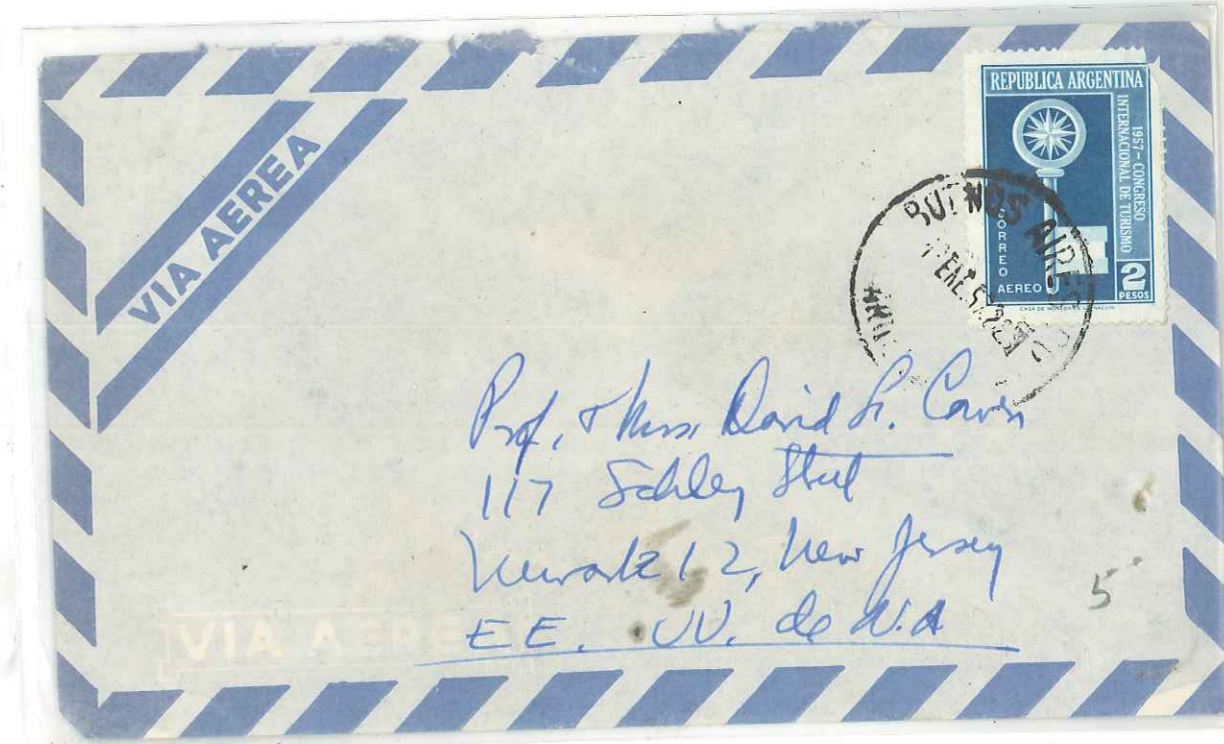 VIA AEREA
REPUBLICA ARGENTINA
1957 - CONGRESO
INTERNACIONAL DE TURISMO
CORREO
AEREO
2
PESOS
CASA DE MONEDA DE LA NACION
BUENOS AIRES
Prof. & Mrs. David L. Cowen
117 Schley Street
Newark 12, New Jersey
EE. UU. de N.A
5
VIA AEREA